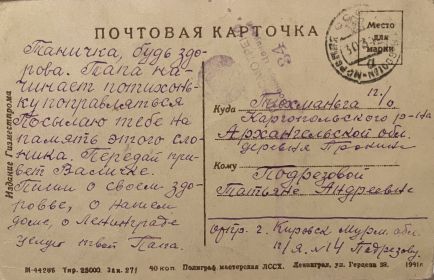 ПОЧТОВАЯ КАРТОЧКА
Место
для
марки
Таничка, будь здо-
рова. Папа на-
чинает потихонь-
ку поправляться
Посылаю тебе на
память этого сло-
ника. Передай при-
вет Васичке.
Пиши о своем здо-
ровье, о нашем
доме, о Ленинграде
твой Папа.
Издание Газместпрома
Куда
п/о
Каргопольского р-на
Архангельской обл.
деревня
Кому
Подрезовой
Татьяне Андреевне
отпр. г. Кировск Мурм. обл.
п/я №14 Подрезову.
М-44286 Тир. 25000. Зак. 271
40 коп. Полиграф. мастерская ЛССХ. Ленинград, ул. Герцена 38. 1941г.